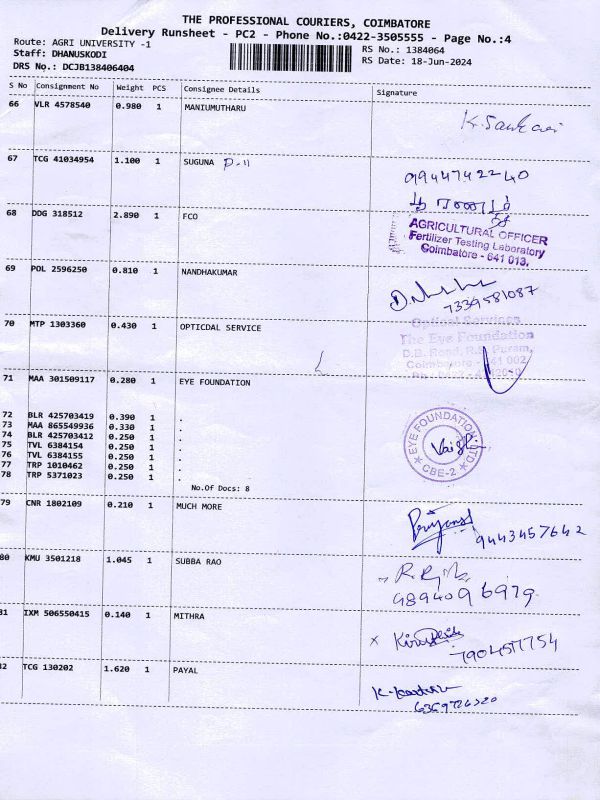 THE PROFESSIONAL COURIERS, COIMBATORE
Delivery Runsheet - PC2 - Phone No.:0422-3505555 - Page No.:4
Route: AGRI UNIVERSITY -1
RS No.: 1384064
Staff: DHANUSKODI
RS Date: 18-Jun-2024
DRS No.: DCJB138406404
S No Consignment No Weight PCS Consignee Details Signature
66 VLR 4578540 0.980 1 MANIUMUTHARU
K. Sankari
67 TCG 41034954 1.100 1 SUGUNA P-11
9944742240
68 DDG 318512 2.890 1 FCO
AGRICULTURAL OFFICER
Fertilizer Testing Laboratory
Coimbatore - 641 013.
69 POL 2596250 0.810 1 NANDHAKUMAR
7339581087
70 MTP 1303360 0.430 1 OPTICDAL SERVICE
Optical Services
The Eye Foundation
D.B. Road, R.S. Puram,
Coimbatore - 641 002
71 MAA 301509117 0.280 1 EYE FOUNDATION
72 BLR 425703419 0.390 1 .
73 MAA 865549936 0.330 1 .
74 BLR 425703412 0.250 1 .
75 TVL 6384154 0.250 1 .
76 TVL 6384155 0.250 1 .
77 TRP 1010462 0.250 1 .
78 TRP 5371023 0.250 1 .
EYE FOUNDATION LTD
CBE-2
No.Of Docs: 8
79 CNR 1802109 0.210 1 MUCH MORE
9443457642
80 KMU 3501218 1.045 1 SUBBA RAO
9894096979
81 IXM 506550415 0.140 1 MITHRA
x
7904517754
82 TCG 130202 1.620 1 PAYAL